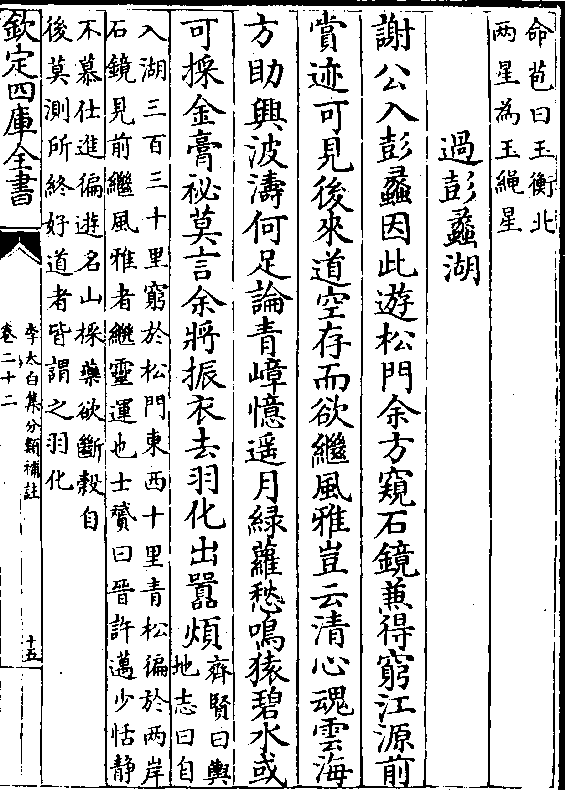 命苞曰玉衡北
两星為玉䋲星
過彭蠡湖
謝公入彭蠡因此遊松門余方窺石鏡兼得窮江源前
賞迹可見後來道空存而欲繼風雅豈云清心魂雲海
方助興波濤何足論青嶂憶遥月緑蘿愁鳴猿碧水或
可採金膏祕莫言余將振衣去羽化出囂煩
齊賢曰輿
地志曰自
入湖三百三十里窮於松門東西十里青松徧於两岸
石鏡見前繼風雅者繼靈運也士贇曰晉許邁少恬静
不慕仕進徧遊名山採藥欲斷榖自
後莫測所終好道者皆謂之羽化
欽定四庫全書
李太白集分類補註
卷二十二
十五